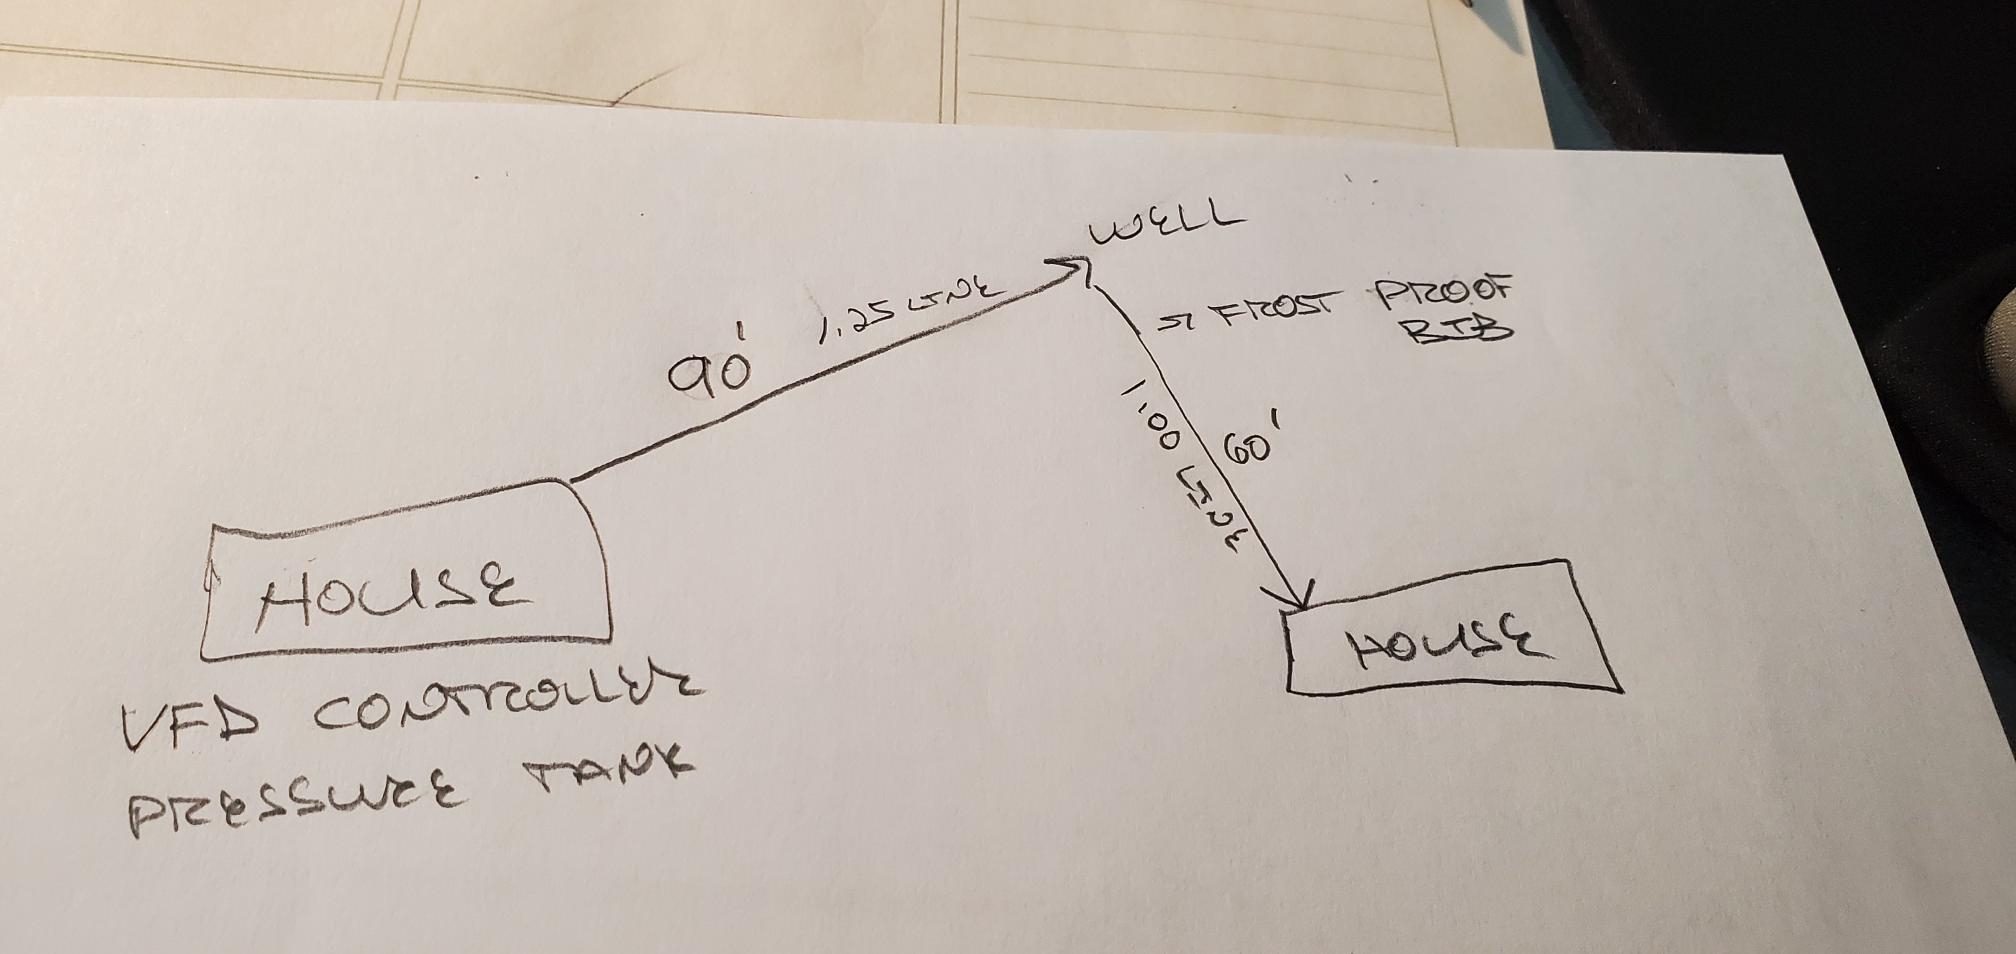 WELL
90' 1.25 LINE
FROST PROOF
BIB
1.00 LINE
60'
HOUSE
HOUSE
VFD CONTROLLER
PRESSURE TANK